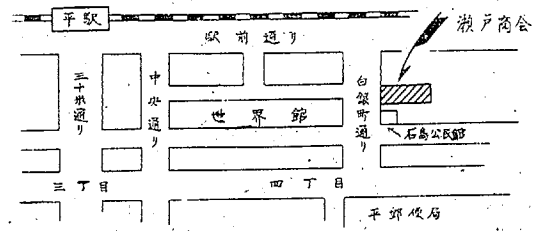 平駅
瀬戸商会
駅前通り
三十米通り
中央通り
世界館
白銀町通り
石島公民館
三丁目
四丁目
平郵便局